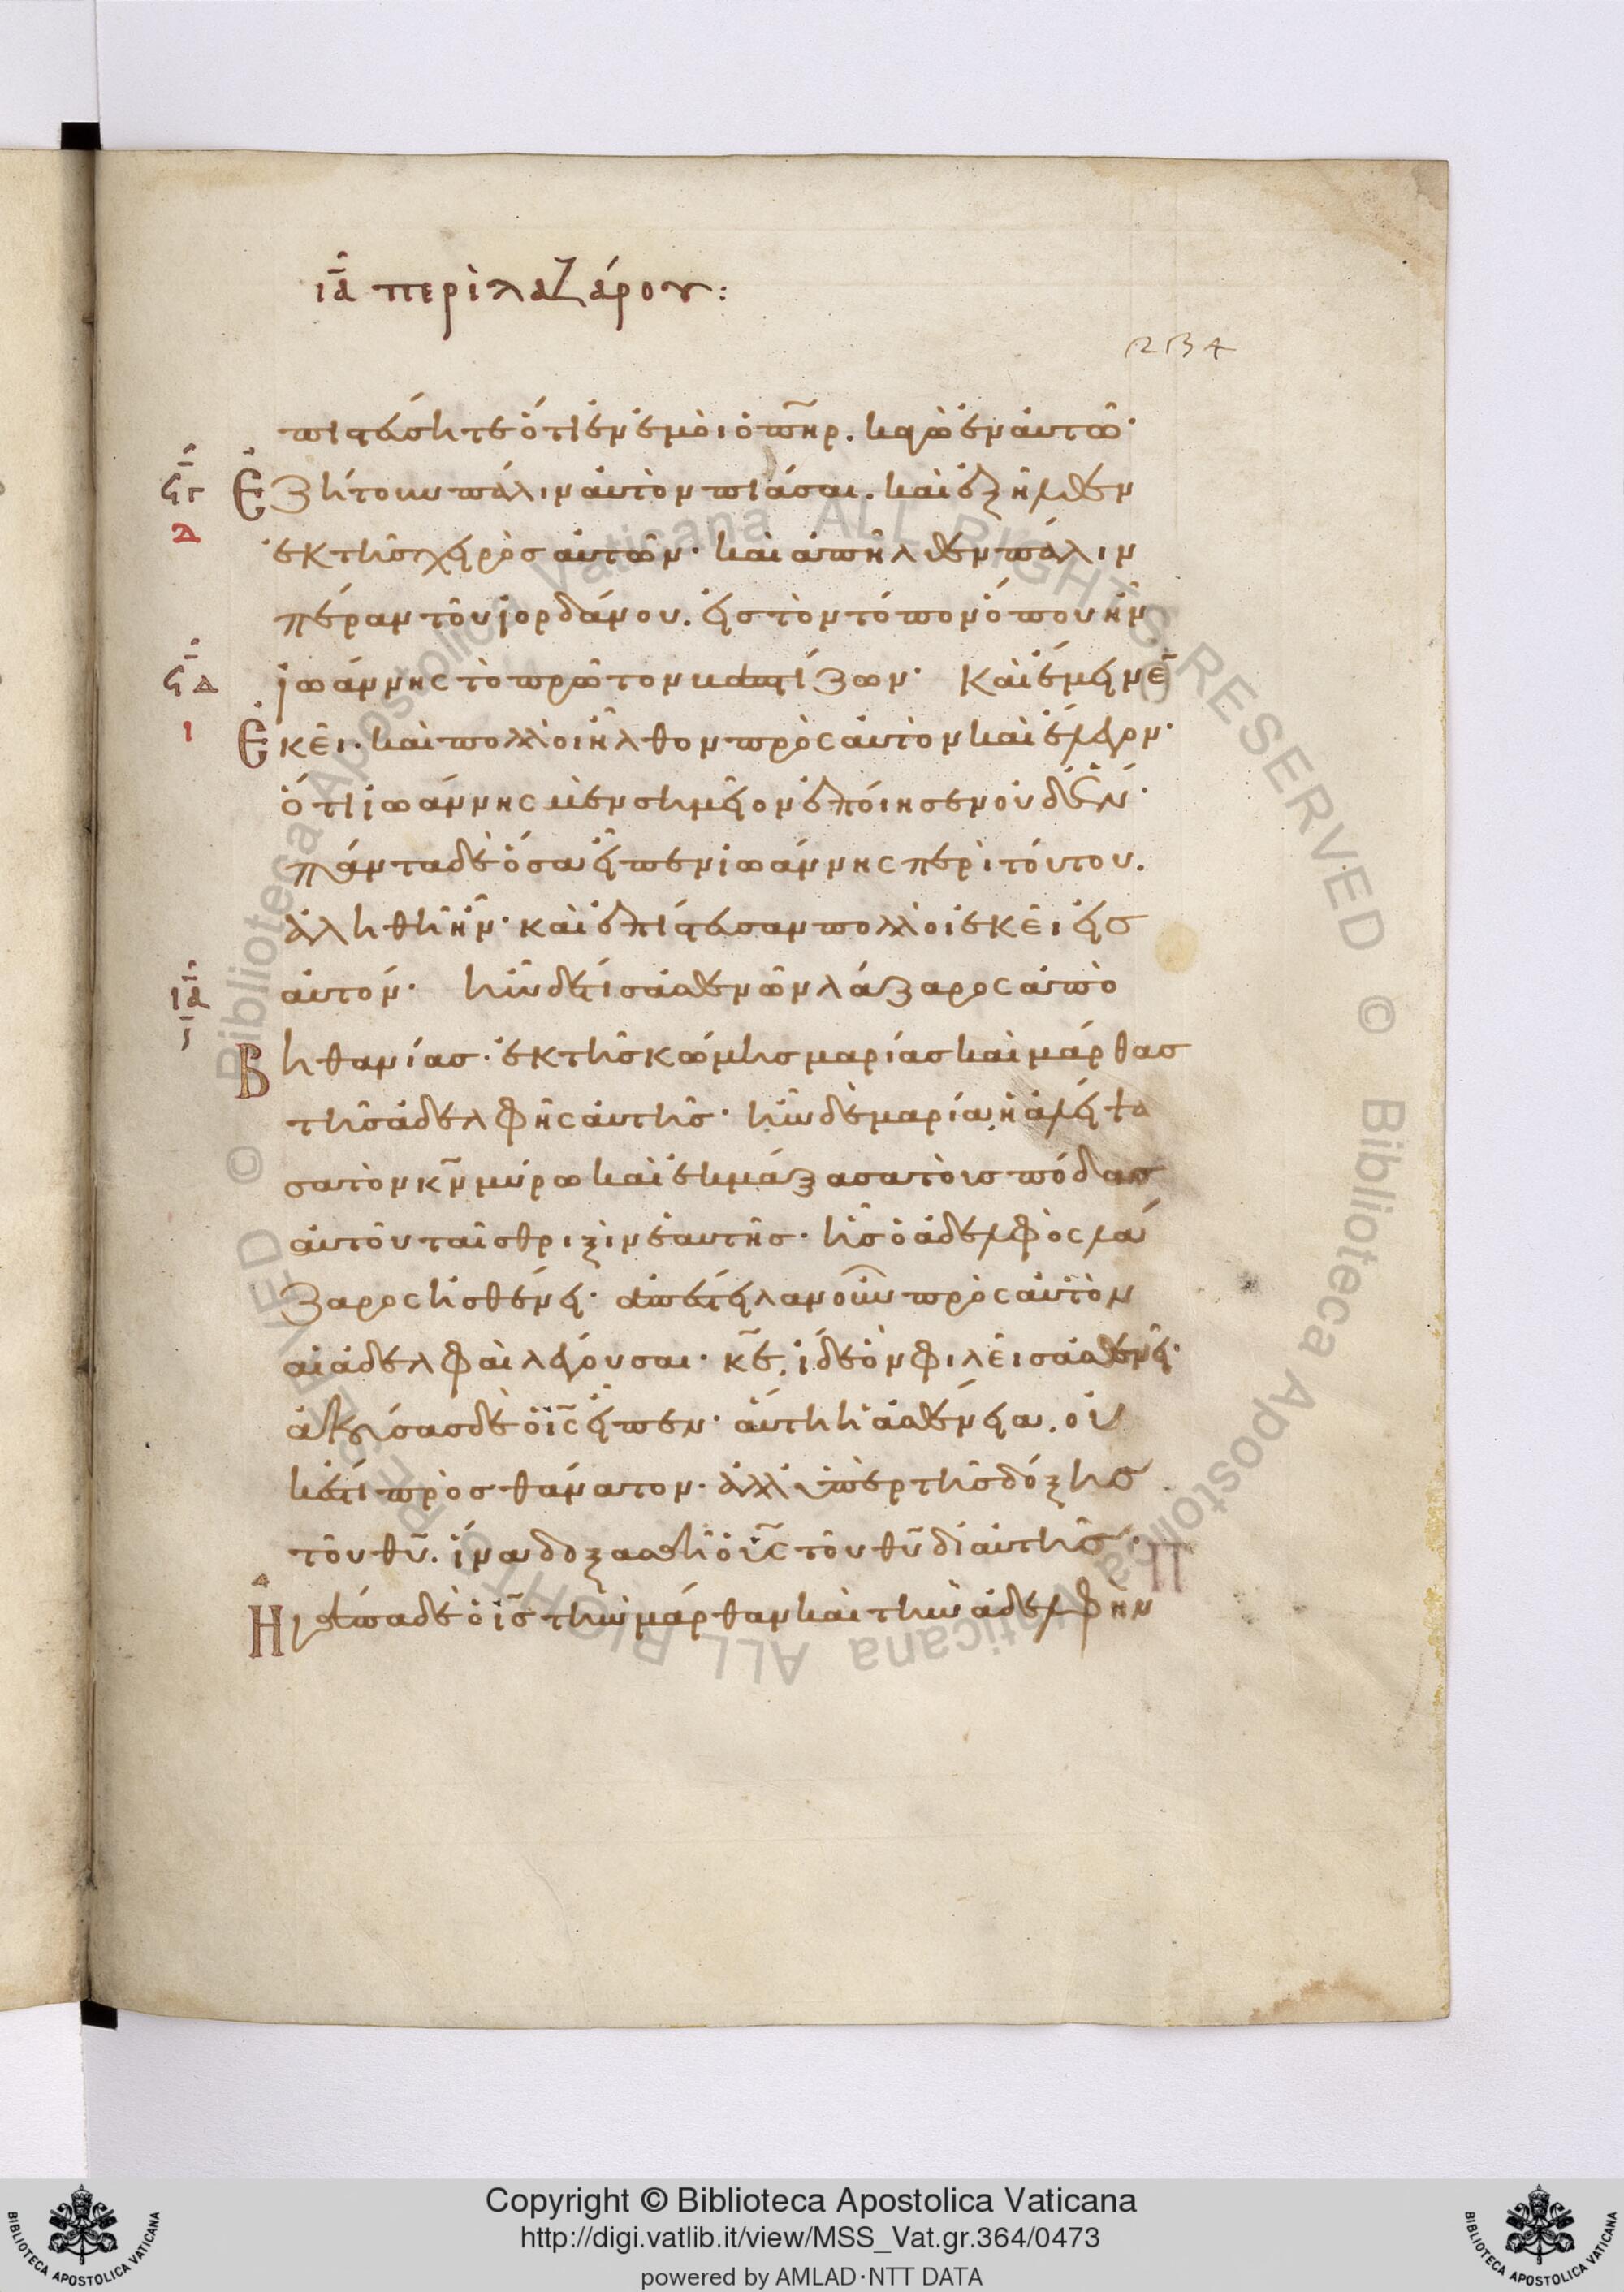 ια περὶ λαζάρου:
234
πιστεύσητε ὅτι ἐν ἐμοὶ ὁ πηρ. κἀγὼ ἐν αὐτῶ·
ϟγ Ἐζήτουν πάλιν αὐτὸν πιάσαι. καὶ ἐξῆλθεν
δ ἐκ τῆς χειρὸς αὐτῶν· καὶ ἀπῆλθεν πάλιν
πέραν τοῦ ἰορδάνου. εἰς τὸν τόπον ὅπου ἦν
ϟδ ἰωάννης τὸ πρῶτον βαπτίζων· Καὶ ἔμεινε
ι Ἐκεῖ· καὶ πολλοὶ ἦλθον πρὸς αὐτὸν καὶ ἔλεγον·
ὅτι ἰωάννης μὲν σημεῖον ἐποίησεν οὐδέν·
πάντα δὲ ὅσα εἶπεν ἰωάννης περὶ τούτου.
ἀληθῆ ἦν· καὶ ἐπίστευσαν πολλοὶ ἐκεῖ εἰς
ια αὐτόν· ἦν δέ τις ἀσθενῶν λάζαρος ἀπὸ
Βηθανίας· ἐκ τῆς κώμης μαρίας καὶ μάρθας
τῆς ἀδελφῆς αὐτῆς· ἦν δὲ μαρία, ἡ ἀλείψα
σα τὸν κν μύρω καὶ ἐκμάξασα τοὺς πόδας
αὐτοῦ ταῖς θριξὶν ἑαυτῆς· ἧς ὁ ἀδελφὸς λά
ζαρος ἠσθένει· ἀπέστειλαν οὖν πρὸς αὐτὸν
αἱ ἀδελφαὶ λέγουσαι· κε, ἴδε ὃν φιλεῖς ἀσθενεῖ·
ἀκούσας δὲ ὁ ις εἶπεν· αὕτη ἡ ἀσθένεια. οὐ
κ ἔστι πρὸς θάνατον· ἀλλ' ὑπὲρ τῆς δόξης
τοῦ θυ. ἵνα δοξασθῆ ὁ υς τοῦ θυ δι' αὐτῆς·
Ἠγάπα δὲ ὁ ις τὴν μάρθαν καὶ τὴν ἀδελφὴν
Copyright © Biblioteca Apostolica Vaticana
http://digi.vatlib.it/view/MSS_Vat.gr.364/0473
powered by AMLAD·NTT DATA
BIBLIOTECA APOSTOLICA VATICANA
BIBLIOTECA APOSTOLICA VATICANA
© Biblioteca Apostolica Vaticana ALL RIGHTS RESERVED © Biblioteca Apostolica Vaticana ALL RIGHTS RESERVED